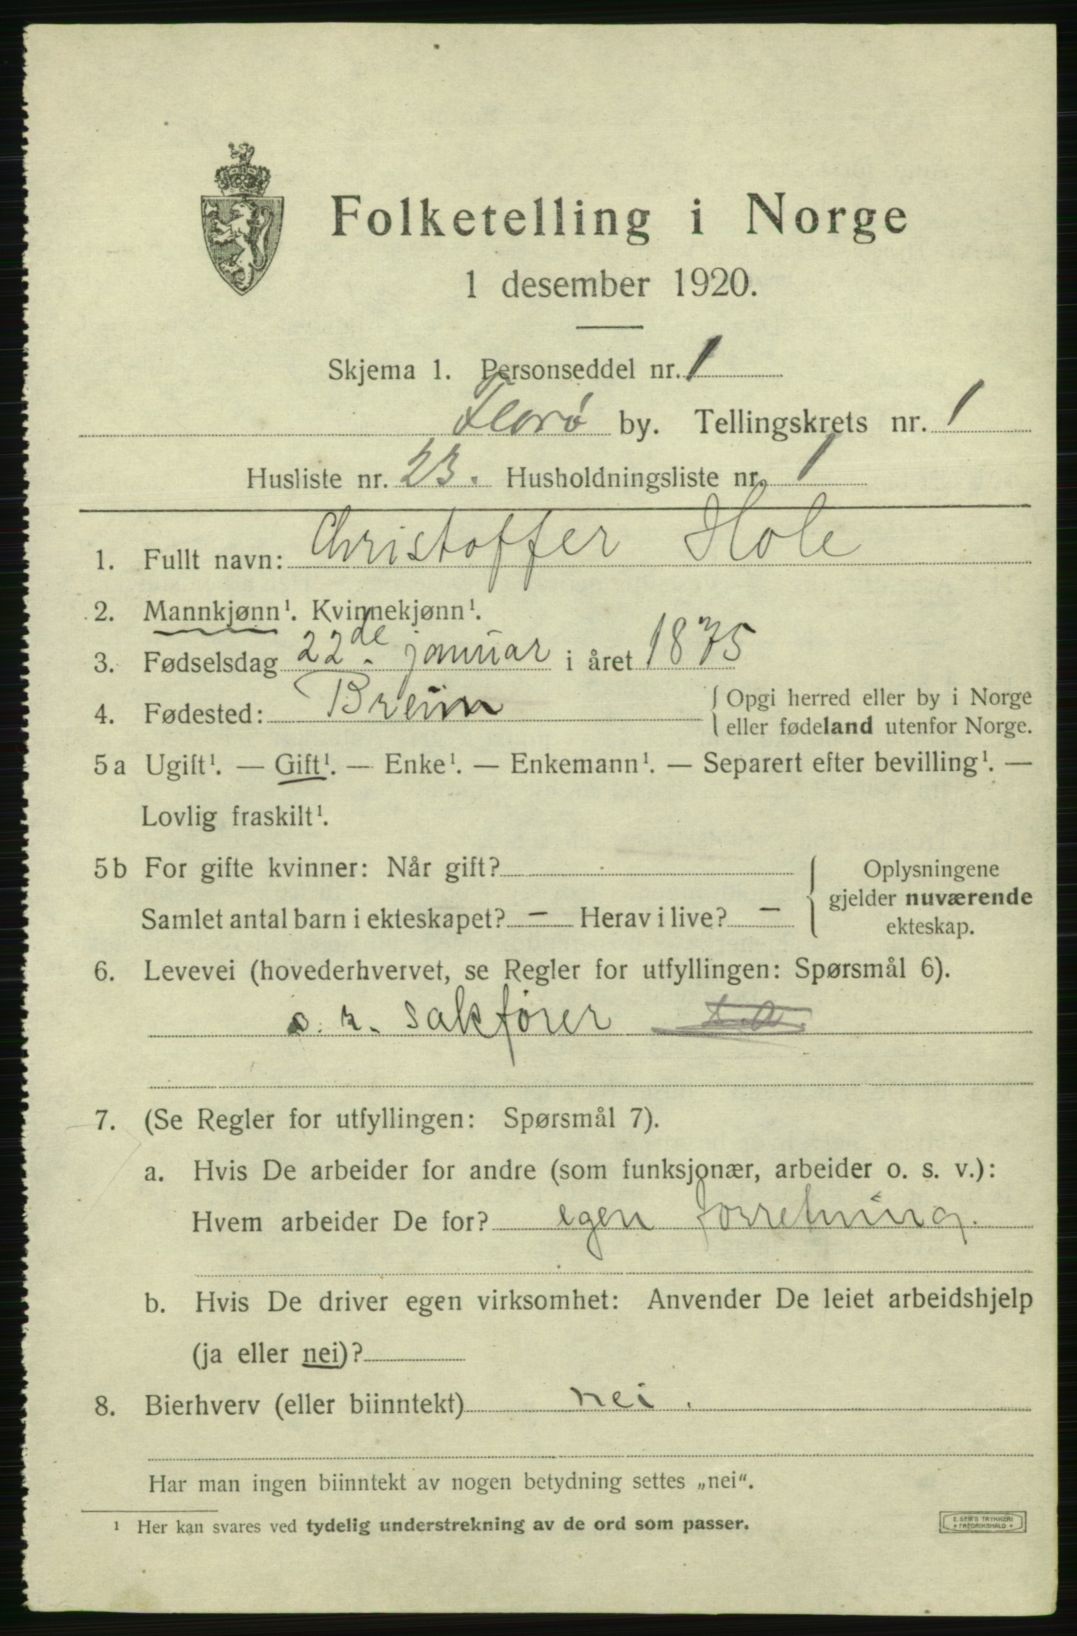 Folketelling i Norge
1 desember 1920.
Skjema 1. Personseddel nr. 1
Florø by. Tellingskrets nr. 1
Husliste nr. 23. Husholdningsliste nr. 1
1. Fullt navn: Christoffer Hole
2. Mannkjønn¹. Kvinnekjønn¹.
3. Fødselsdag 22de januar i året 1875
4. Fødested: Breim { Opgi herred eller by i Norge
eller fødeland utenfor Norge.
5a Ugift¹. — Gift¹. — Enke¹. — Enkemann¹. — Separert efter bevilling¹. —
Lovlig fraskilt¹.
5b For gifte kvinner: Når gift?
Samlet antal barn i ekteskapet? — Herav i live? —
{ Oplysningene
gjelder nuværende
ekteskap.
6. Levevei (hovederhvervet, se Regler for utfyllingen: Spørsmål 6).
o. r. sakfører
7. (Se Regler for utfyllingen: Spørsmål 7).
a. Hvis De arbeider for andre (som funksjonær, arbeider o. s. v.):
Hvem arbeider De for? egen forretning.
b. Hvis De driver egen virksomhet: Anvender De leiet arbeidshjelp
(ja eller nei)?
8. Bierhverv (eller biinntekt) nei.
Har man ingen biinntekt av nogen betydning settes „nei“.
¹ Her kan svares ved tydelig understrekning av de ord som passer.
E. SEM'S TRYKKERI
FREDRIKSHALD